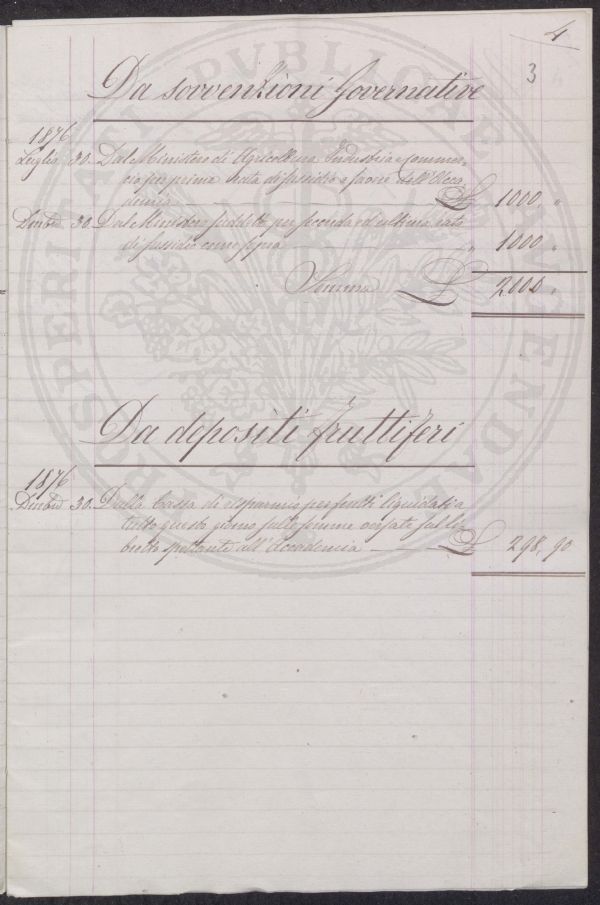 4
3
Da sovvenzioni Governative
1876
Luglio 30. Dal Ministero di Agricoltura Industria e Commer-
cio per prima rata di sussidio a favore dell'Acca-
demia £ 1000, "
Dicbre 30. Dal Ministero suddetto per seconda ed ultima rata
di sussidio come sopra " 1000 "
Somma £ 2000 "
Da depositi fruttiferi
1876
Dicbre 30. Dalla Cassa di risparmio per frutti liquidati a
tutto questo giorno sulle somme versate sul li-
bretto spettante all'Accademia £ 298,90
PROSPERITATI PVBLICAE AVGENDAE